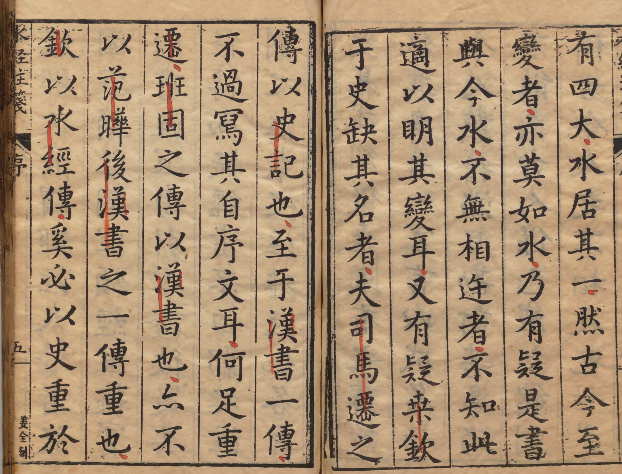 有四大水居其一然古今至
變者亦莫如水乃有疑是書
與今水不無相迕者不知此
適以明其變耳又有疑桒欽
于史缺其名者夫司馬遷之
傳以史記也至于漢書一傳
不過寫其自序文耳何足重
遷班固之傳以漢書也亦不
以范曄後漢書之一傳重也
欽以水經傳奚必以史重於
水經注箋
序
五